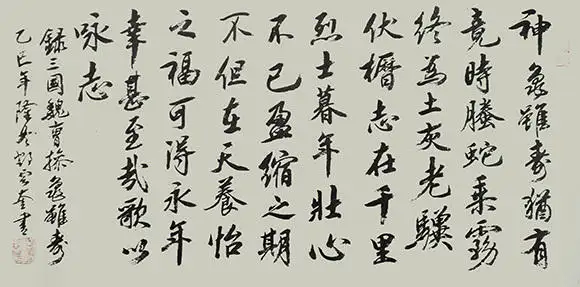 神龜雖壽猶有
竟時螣蛇乘霧
終為土灰老驥
伏櫪志在千里
烈士暮年壯心
不已盈縮之期
不但在天養怡
之福可得永年
幸甚至哉歌以
咏志
録三国魏曹操龜雖壽
乙巳年隆冬書